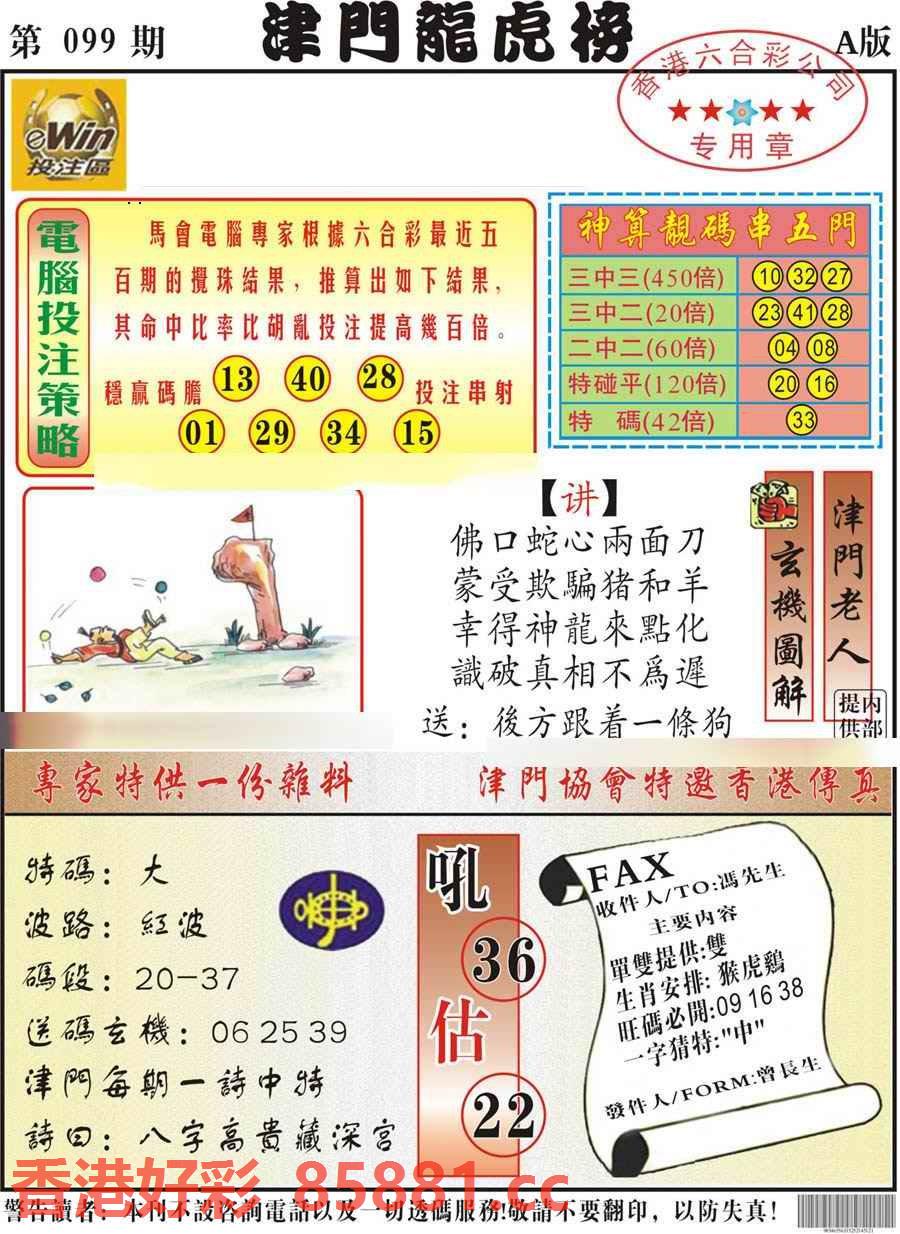 第 099 期
津門龍虎榜
A版
香港六合彩公司
专用章
eWin
投注區
電腦投注策略
馬會電腦專家根據六合彩最近五
百期的攪珠結果，推算出如下結果，
其命中比率比胡亂投注提高幾百倍。
穩贏碼膽 13 40 28 投注串射
01 29 34 15
神算靚碼串五門
三中三(450倍) 10 32 27
三中二(20倍) 23 41 28
二中二(60倍) 04 08
特碰平(120倍) 20 16
特 碼(42倍) 33
【讲】
佛口蛇心兩面刀
蒙受欺騙猪和羊
幸得神龍來點化
識破真相不爲遲
送：後方跟着一條狗
玄機圖解
津門老人
内部提供
專家特供一份雜料
津門協會特邀香港傳真
特碼：大
波路：紅波
碼段：20-37
送碼玄機：06 25 39
津門每期一詩中特
詩曰：八字高貴藏深宮
吼
36
估
22
FAX
收件人/TO:馮先生
主要内容
單雙提供:雙
生肖安排: 猴虎鷄
旺碼必開:09 16 38
一字猜特:"中"
發件人/FORM:曾長生
香港好彩 85881.cc
警告讀者：本刊不設咨詢電話以及一切透碼服務!敬請不要翻印，以防失真!